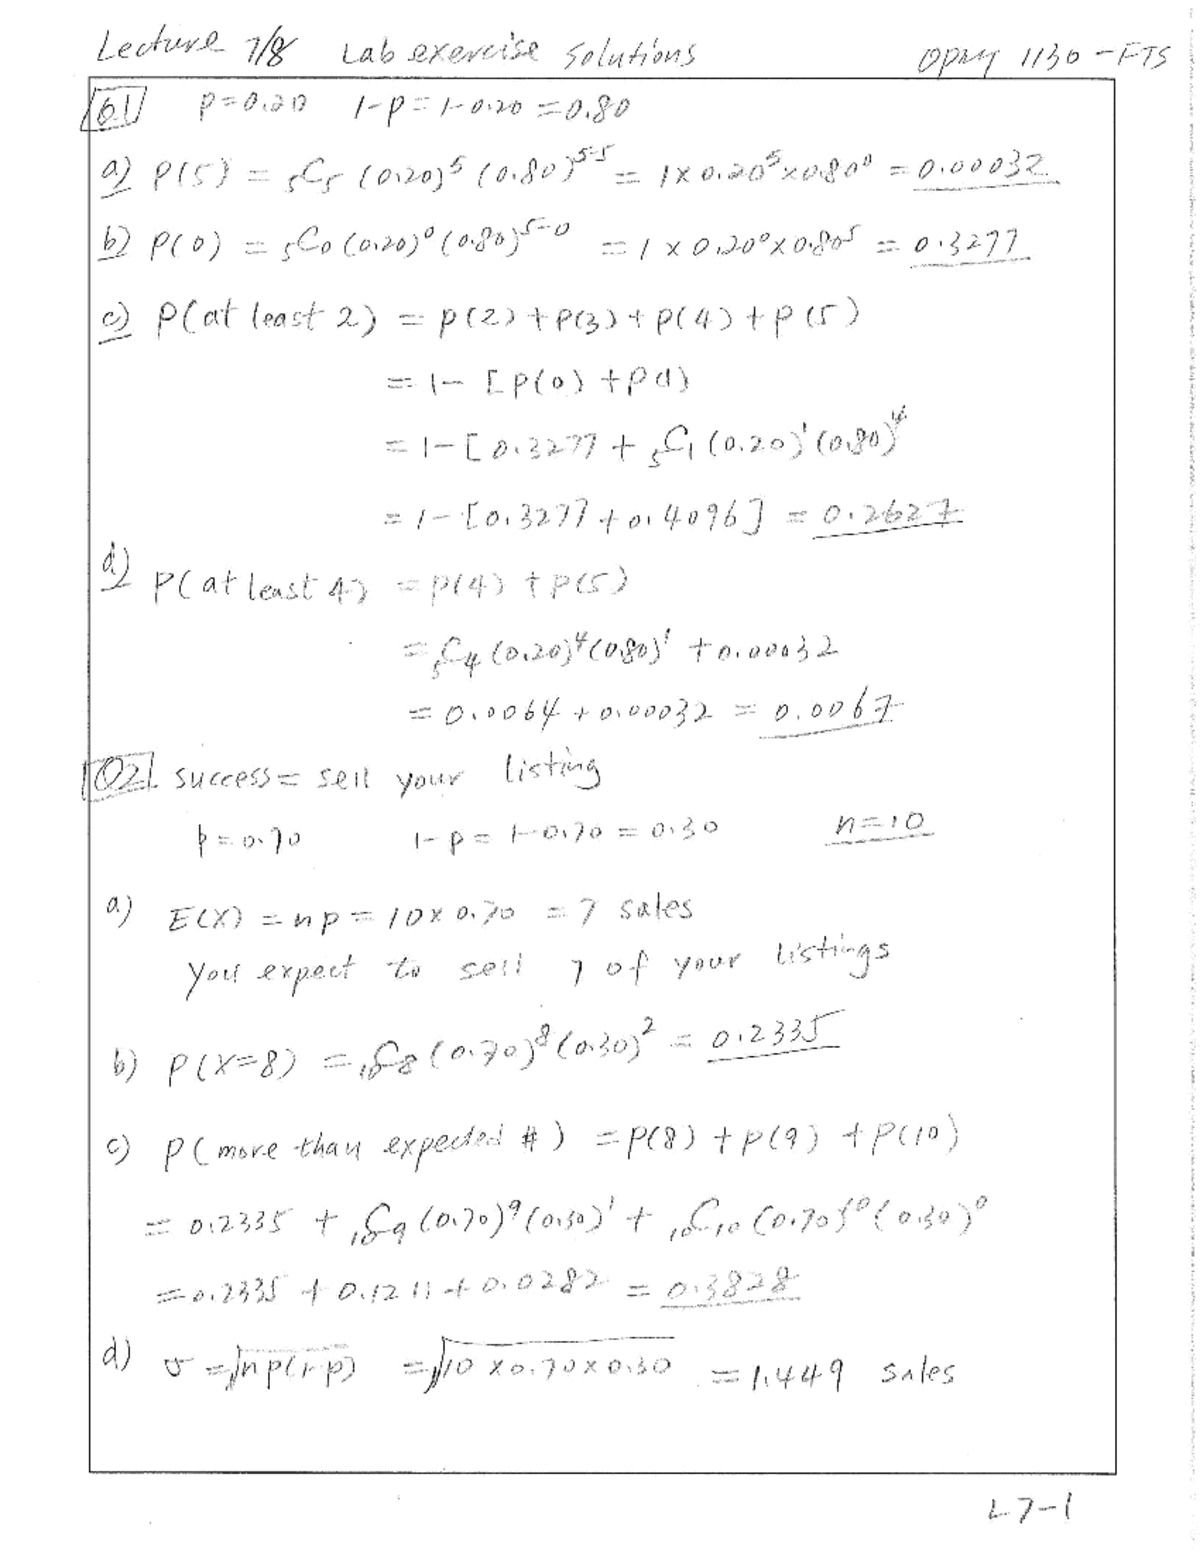 Lecture 7/8 Lab exercise Solutions OPMT 1130-FTS
Q1 P=0.20 1-P=1-0.20=0.80
a) P(5) = 5C5 (0.20)^5 (0.80)^5-5 = 1×0.20^5×0.80^0 = 0.00032
b) P(0) = 5C0 (0.20)^0 (0.80)^5-0 = 1×0.20^0×0.80^5 = 0.3277
c) P(at least 2) = P(2)+P(3)+P(4)+P(5)
= 1-[P(0)+P(1)
= 1-[0.3277 + 5C1 (0.20)^1 (0.80)^4
= 1-[0.3277+0.4096] = 0.2627
d) P(at least 4) = P(4) + P(5)
= 5C4 (0.20)^4 (0.80)^1 + 0.00032
= 0.0064 + 0.00032 = 0.0067
Q2 success = sell your listing
p=0.70 1-p = 1-0.70 = 0.30 n=10
a) E(X) = np = 10×0.70 = 7 sales
You expect to sell 7 of your listings
b) P(X=8) = 10C8 (0.70)^8 (0.30)^2 = 0.2335
c) P(more than expected #) = P(8) + P(9) + P(10)
= 0.2335 + 10C9 (0.70)^9 (0.30)^1 + 10C10 (0.70)^10 (0.30)^0
= 0.2335 + 0.1211 + 0.0282 = 0.3828
d) σ = √np(1-p) = √10×0.70×0.30 = 1.449 sales
L7-1